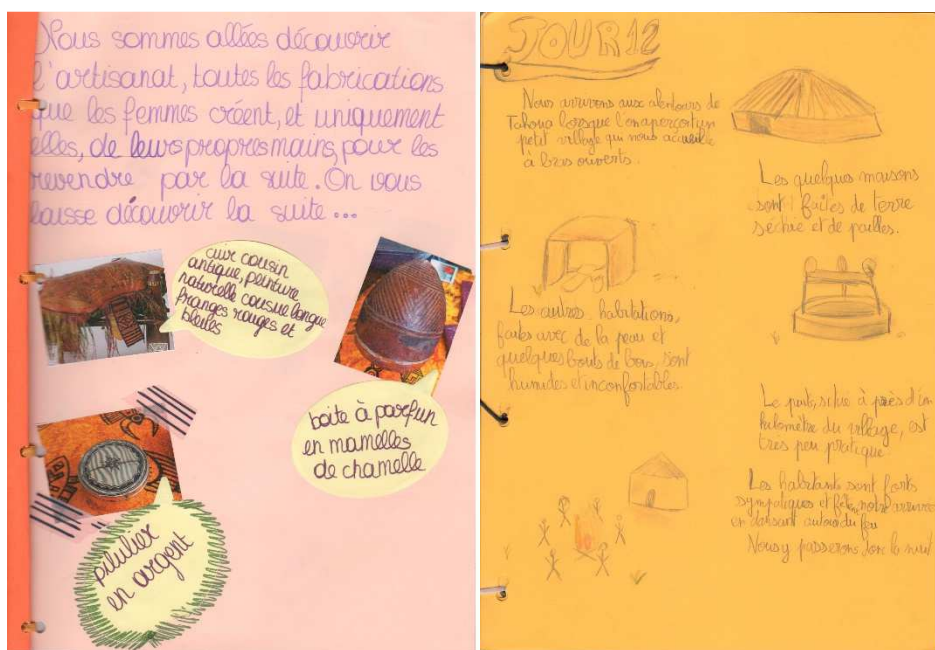 Nous sommes allées découvrir
l'artisanat, toutes les fabrications
que les femmes créent, et uniquement
elles, de leurs propres mains, pour les
revendre par la suite. On vous
laisse découvrir la suite ...
cuir cousin
antique, peinture
naturelle cousue longue
franges rouges et
bleues
boite à parfun
en mamelles
de chamelle
pilulier
en argent
JOUR 12
Nous arrivons aux alentours de
Tahoua lorsque l'on aperçoit un
petit village qui nous accueille
à bras ouverts.
Les quelques maisons
sont faites de terre
séchée et de pailles.
Les autres habitations,
faits avec de la peau et
quelques bouts de bois, sont
humides et inconfortables.
Le puits, situé à près d'un
kilomètre du village, est
très peu pratique.
Les habitants sont forts
sympatiques et fêtent notre arrivée
en dansant autour du feu
Nous y passerons donc la nuit